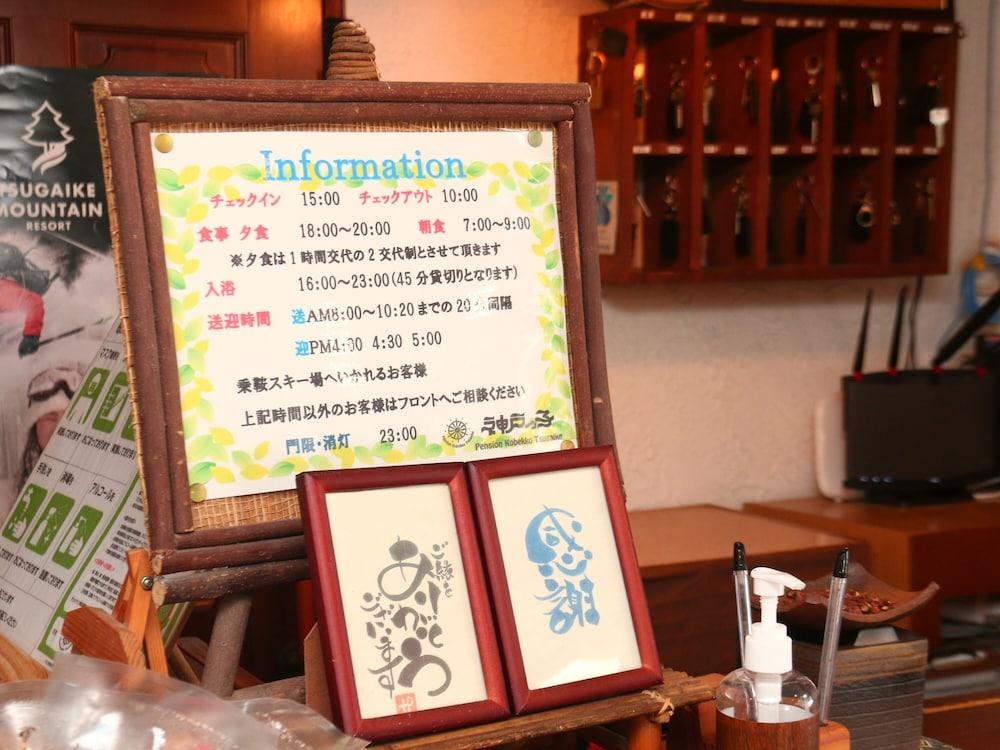 Information
チェックイン 15:00 チェックアウト 10:00
食事 夕食 18:00～20:00 朝食 7:00～9:00
※夕食は1時間交代の2交代制とさせて頂きます
入浴 16:00～23:00(45分貸切りとなります)
送迎時間 送AM8:00～10:20までの20分間隔
迎PM4:00 4:30 5:00
乗鞍スキー場へいかれるお客様
上記時間以外のお客様はフロントへご相談ください
門限・消灯 23:00
神戸っ子
Pension Kobekko Tsugaike
TSUGAIKE
MOUNTAIN
RESORT
ご縁を
ありがとう
ございます
感謝